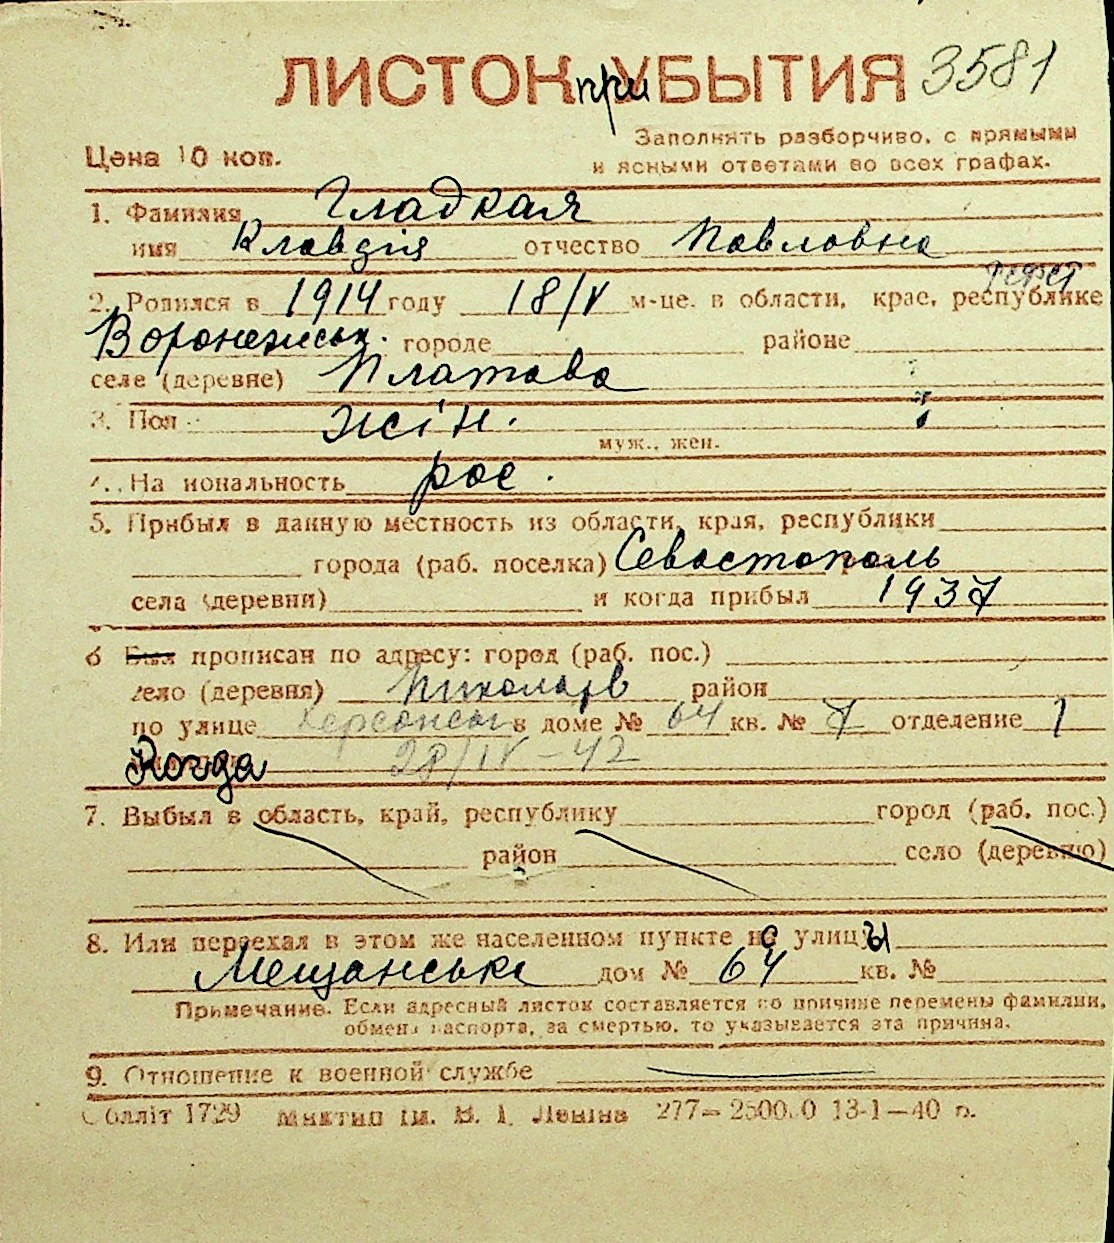 ЛИСТОК приУБЫТИЯ 3581
Цена 10 коп.
Заполнять разборчиво, с прямыми
и ясными ответами во всех графах.
1. Фамилия Гладкая
имя Клавдія отчество Павловна
РСФСР
2. Родился в 1914 году 18/V м-це. в области, крае, республике
Воронежськ. городе районе
селе (деревне) Платава
3. Пол жін.
муж., жен.
4. На иональность рос.
5. Прибыл в данную местность из области, края, республики
города (раб. поселка) Севастополь
села (деревни) и когда прибыл 1937
6 Был прописан по адресу: город (раб. пос.)
село (деревня) Николаїв район
по улице Херсонськ в доме № 64 кв. № 7 отделение 1
Когда 28/IV-42
7. Выбыл в область, край, республику город (раб. пос.)
район село (деревню)
8. Или переехал в этом же населенном пункте на с улицы
Мещанська дом № 64 кв. №
Примечание. Если адресный листок составляется по причине перемены фамилии,
обмена паспорта, за смертью, то указывается эта причина.
9. Отношение к военной службе
Облліт 1729 Миктип ім. В. І. Леніна 277—2500.0 13-1—40 р.